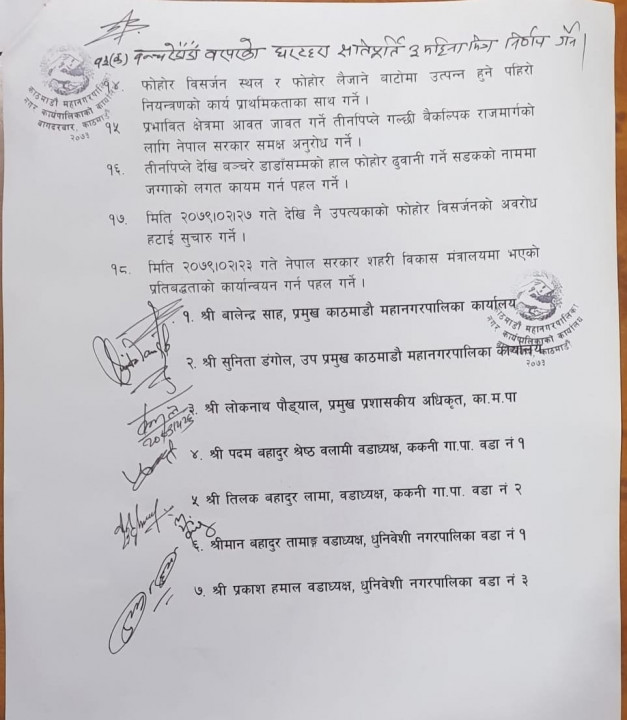 १३(क) बन्चरेडाँडा वरपरको घरटहरा सालैप्रति ३ महिना भित्र निर्णय गर्ने ।
१४. फोहोर विसर्जन स्थल र फोहोर लैजाने बाटोमा उत्पन्न हुने पहिरो
नियन्त्रणको कार्य प्राथमिकताका साथ गर्ने ।
१५ प्रभावित क्षेत्रमा आवत जावत गर्ने तीनपिप्ले गल्छी बैकल्पिक राजमार्गको
लागि नेपाल सरकार समक्ष अनुरोध गर्ने ।
१६. तीनपिप्ले देखि बञ्चरे डाडाँसम्मको हाल फोहोर ढुवानी गर्ने सडकको नाममा
जग्गाको लगत कायम गर्न पहल गर्ने ।
१७. मिति २०७९।०२।२७ गते देखि नै उपत्यकाको फोहोर विसर्जनको अवरोध
हटाई सुचारु गर्ने ।
१८. मिति २०७९।०२।२३ गते नेपाल सरकार शहरी विकास मंत्रालयमा भएको
प्रतिबद्धताको कार्यान्वयन गर्न पहल गर्ने ।
१. श्री बालेन्द्र साह, प्रमुख काठमाडौ महानगरपालिका कार्यालय
२. श्री सुनिता डंगोल, उप प्रमुख काठमाडौ महानगरपालिका कार्यालय
३. श्री लोकनाथ पौड्याल, प्रमुख प्रशासकीय अधिकृत, का.म.पा
४. श्री पदम बहादुर श्रेष्ठ वलामी वडाध्यक्ष, ककनी गा.पा. वडा नं १
५ श्री तिलक बहादुर लामा, वडाध्यक्ष, ककनी गा.पा. वडा नं २
६. श्रीमान बहादुर तामाङ्ग वडाध्यक्ष, धुनिवेशी नगरपालिका वडा नं १
७. श्री प्रकाश हमाल वडाध्यक्ष, धुनिवेशी नगरपालिका वडा नं ३
काठमाडौं महानगरपालिका
नगर कार्यपालिकाको कार्यालय
बागदरबार, काठमाडौं
२०७३
काठमाडौं महानगरपालिका
नगर कार्यपालिकाको कार्यालय
काठमाडौं
२०७३